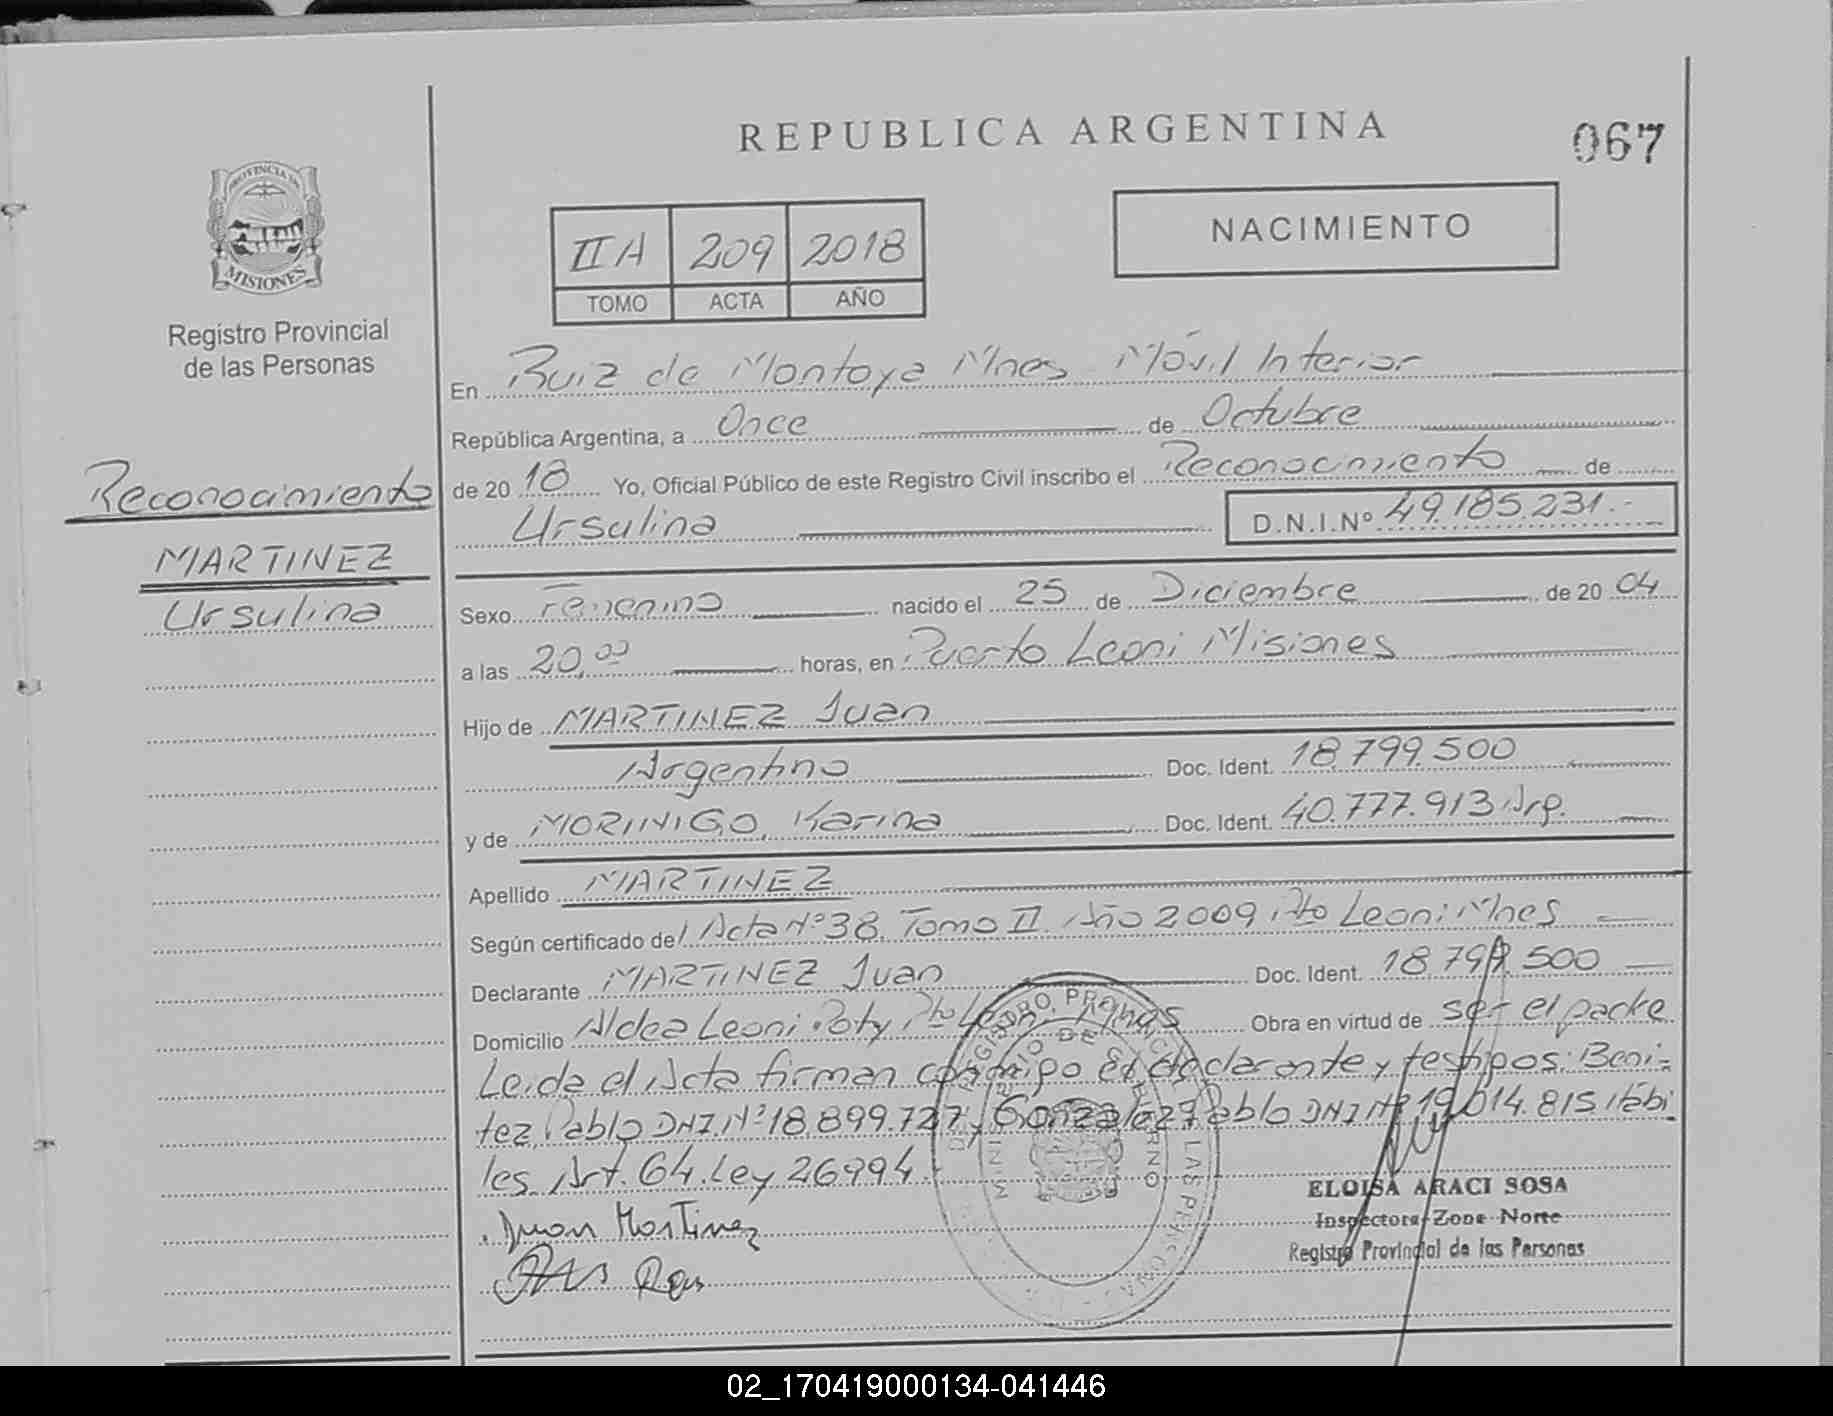 REPUBLICA ARGENTINA
067
PROVINCIA DE
MISIONES
Registro Provincial
de las Personas
IIA 209 2018
TOMO ACTA AÑO
NACIMIENTO
En Ruiz de Montoya Mnes Móvil Interior
República Argentina, a Once de Octubre
de 2018 Yo, Oficial Público de este Registro Civil inscribo el Reconocimiento de
Ursulina D.N.I.Nº 49.185.231.-
Reconocimiento
MARTINEZ
Ursulina
Sexo Femenino nacido el 25 de Diciembre de 2004
a las 20,00 horas, en Puerto Leoni Misiones
Hijo de MARTINEZ Juan
Argentino Doc. Ident. 18.799.500
y de MORINIGO, Karina Doc. Ident. 40.777.913 Arg.
Apellido MARTINEZ
Según certificado del Acta Nº 38. Tomo II. Año 2009 Pto Leoni Mnes
Declarante MARTINEZ Juan Doc. Ident. 18.799.500
Domicilio Aldea Leoni Poty Pto Leoni Mnes Obra en virtud de ser el padre
Leida el Acta firman conmigo el declarante y testigos: Beni-
tez, Pablo DNI.Nº 18.899.727 y Gonzalez Pablo DNI Nº 19.014.815 Habi
les. Art. 64. Ley 26994.
Juan Martinez
ELOISA ARACI SOSA
Inspectora Zona Norte
Registro Provincial de las Personas
02_170419000134-041446